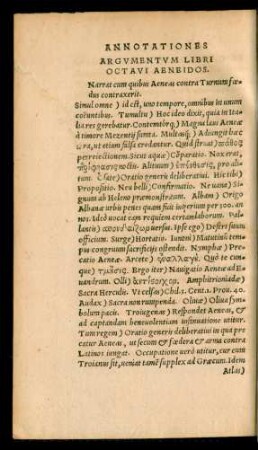 ANNOTATIONES
ARGVMENTVM LIBRI
OCTAVI AENEIDOS.
Narrat cum quibus Aeneas contra Turnum fœ-
dus contraxerit.
Simul omne) id est, uno tempore, omnibus in unum
coëuntibus. Tumultu) Hoc ideo dixit, quia in Ita-
lia res gerebatur. Contemtorq́;) Magna laus Aeneæ
à timore Mezentij sumta. Multasq́;) Adiungit
ut etiam falsa credantur. Quid struat)
per reiectionem. Sicut aquæ) Cōparatio. Nox erat,
Altitum)
rum. Oratio generis deliberatiui. Hic tibi)
Propositio. Neu belli) Confirmatio. Ne uana) Si-
gnum ab Heleno præmonstratum. Albam) Origo
Albanæ urbis penes quam fuit imperium per 300. an-
nos. Ideò uocat eam requiem certandi laborum. Pal-
lantis) Ipse ego) Desert suum
officium. Surge) Hortatio. Iunoni) Matutinū tem-
pus congruum sacrificijs ostendit. Nymphæ) Pre-
catio Aeneæ. Arcete) Quò te cun-
que) Ergo iter) Nauigatio Aeneæ ad E-
uandrum. Olli) Amphitrioniadæ)
Sacra Herculis. Vt celsas) Chil. 2. Cent. 1. Prou. 40.
Audax) Sacra non rumpenda. Oliuæ) Oliua sym-
bolum pacis. Troiugenas) Respondet Aeneas, &
ad captandam beneuolentiam insinuatione utitur.
Tum regem) Oratio generis deliberatiui in qua pre-
catur Aeneas, ut secum & fœdera & arma contra
Latinos iungat. Occupatione uerò utitur, cur cum
Troianus sit, ueniat tamē supplex ad Græcum. Idem
Atlas)